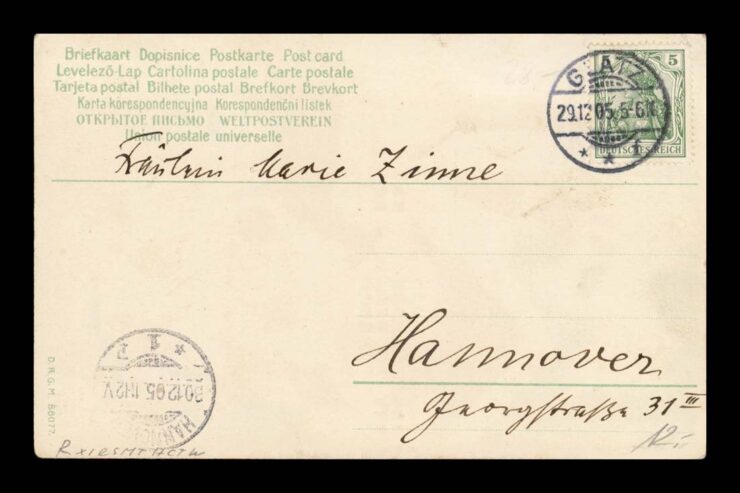 Briefkaart Dopisnice Postkarte Post card
Levelező-Lap Cartolina postale Carte postale
Tarjeta postal Bilhete postal Brefkort Brevkort
Karta korespondencyjna Korespondenční lístek
ОТКРЫТОЕ ПИСЬМО WELTPOSTVEREIN
Union postale universelle
GLATZ
29.12.05. 5-6N.
* * *
5
DEUTSCHES REICH
Fräulein Marie Zinne
Hannover
Georgstraße 31 III
* 1 P
30.12.05. 11-12V
D.R.G.M. 88077.
12.-